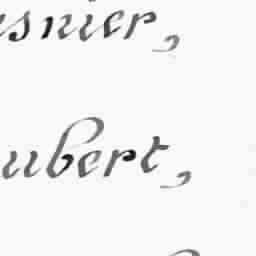 snier,
ubert,